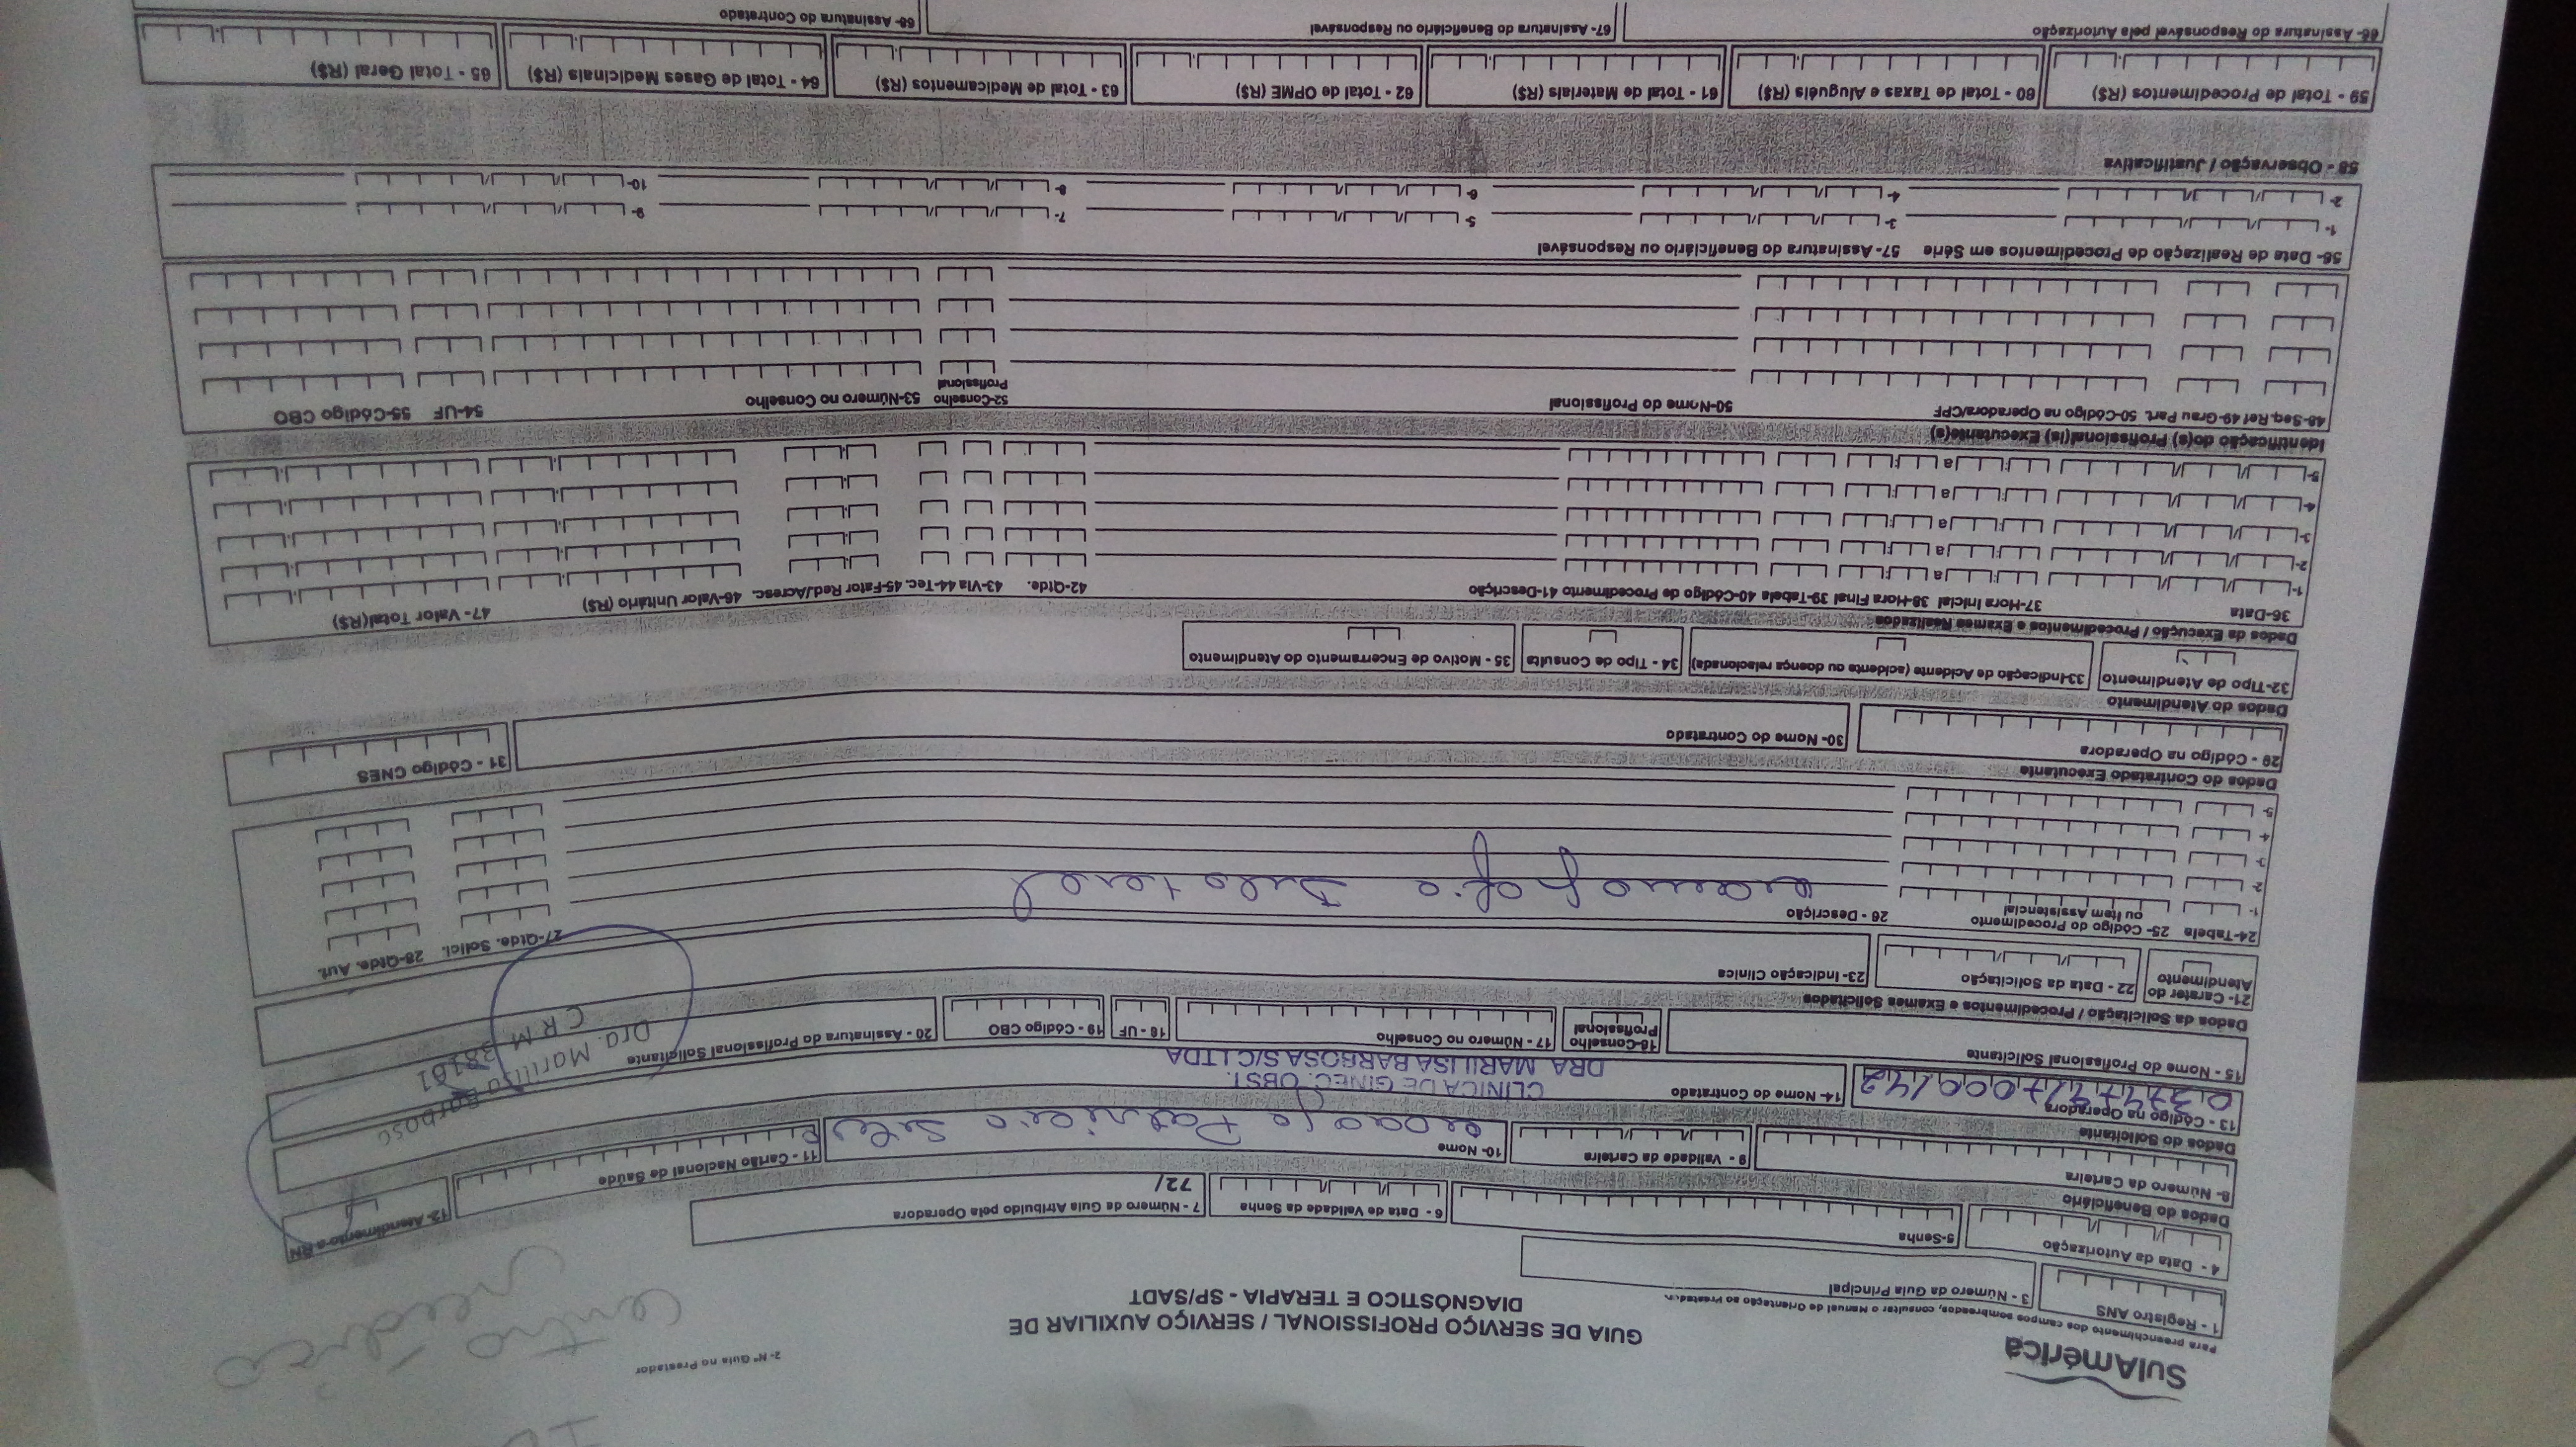 SulAmérica
GUIA DE SERVIÇO PROFISSIONAL / SERVIÇO AUXILIAR DE
DIAGNÓSTICO E TERAPIA - SP/SADT
2- Nº Guia no Prestador
Para preenchimento dos campos sombreados, consultar o Manual de Orientação ao Prestador.
1 - Registro ANS
3 - Número da Guia Principal
4 - Data da Autorização
5-Senha
6 - Data de Validade da Senha
7 - Número da Guia Atribuído pela Operadora
72/
Dados do Beneficiário
8- Número da Carteira
9 - Validade da Carteira
10- Nome
11 - Cartão Nacional de Saúde
12- Atendimento a RN
Dados do Solicitante
13 - Código na Operadora
14- Nome do Contratado
CLINICA DE GINEC. OBST.
DRA. MARILISA BARBOSA S/C LTDA
15 - Nome do Profissional Solicitante
16-Conselho
Profissional
17 - Número no Conselho
18 - UF
19 - Código CBO
20 - Assinatura do Profissional Solicitante
Dra. Marilisa Barbosa
CRM
Dados da Solicitação / Procedimentos e Exames Solicitados
21- Carater do
Atendimento
22 - Data da Solicitação
23- Indicação Clínica
24-Tabela
25- Código do Procedimento
ou Item Assistencial
26 - Descrição
27-Qtde. Solici.
28-Qtde. Aut.
1-
Bilateral
2-
3-
4-
5-
Dados do Contratado Executante
29 - Código na Operadora
30- Nome do Contratado
31 - Código CNES
Dados do Atendimento
32-Tipo de Atendimento
33-Indicação de Acidente (acidente ou doença relacionada)
34 - Tipo de Consulta
35 - Motivo de Encerramento do Atendimento
Dados da Execução / Procedimentos e Exames Realizados
36-Data
37-Hora Inicial 38-Hora Final 39-Tabela 40-Código de Procedimento 41-Descrição
42-Qtde.
43-Via 44-Tec. 45-Fator Red./Acresc. 46-Valor Unitário (R$)
47- Valor Total(R$)
1-
a
2-
a
3-
a
4-
a
5-
a
Identificação do(s) Profissional(is) Executante(s)
48-Seq.Ref 49-Grau Part. 50-Código na Operadora/CPF
50-Nome do Profissional
52-Conselho
Profissional
53-Número no Conselho
54-UF
55-Código CBO
56- Data de Realização de Procedimentos em Série
57- Assinatura do Beneficiário ou Responsável
1-
3-
5-
7-
9-
2-
4-
6-
8-
10-
58 - Observação / Justificativa
59 - Total de Procedimentos (R$)
60 - Total de Taxas e Aluguéis (R$)
61 - Total de Materiais (R$)
62 - Total de OPME (R$)
63 - Total de Medicamentos (R$)
64 - Total de Gases Medicinais (R$)
65 - Total Geral (R$)
66- Assinatura do Responsável pela Autorização
67- Assinatura do Beneficiário ou Responsável
68- Assinatura do Contratado